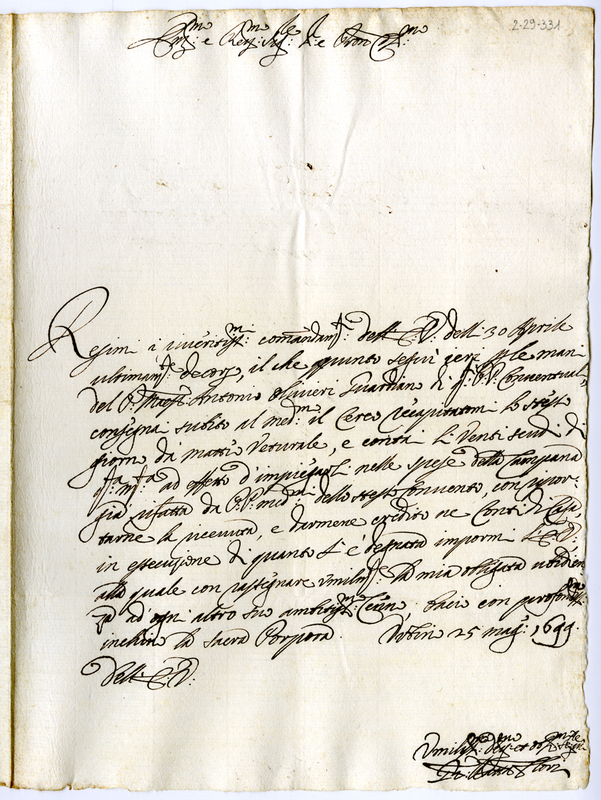 2-29-331
Em.mo e Rev.mo Sig.re P.e e Pron Col.mo
Ricevei i riveritiss.mi comandam.ti dell'E.V. dell 30 Aprile
ultimam.te decorso, il che giunto
del P. Maest.o Antonio Olivieri Guardian di Conventuali,
consegnai subito al med.mo il Cereo lo stesso
giorno da mattio Veturale, e contai li Venti scudi di
ad effetto d'impiegarli nelle spese della Campana
già rifatta da P.P. med.mi dello stesso Convento, con ripor-
tarne la ricevuta, e darmene credito ne Conti di
in essecuzione di quanto s'è degnata impormi L'E.V.
alla quale con rassegnare umilm.te la mia obligata ubidien
za ad ogni altro suo Cenno, bacio con profondiss.mo
inchino la sacra Porpora. Urbin 25 mag.o 1699
Dell'E.V.
Umiliss.mo Dev.mo et